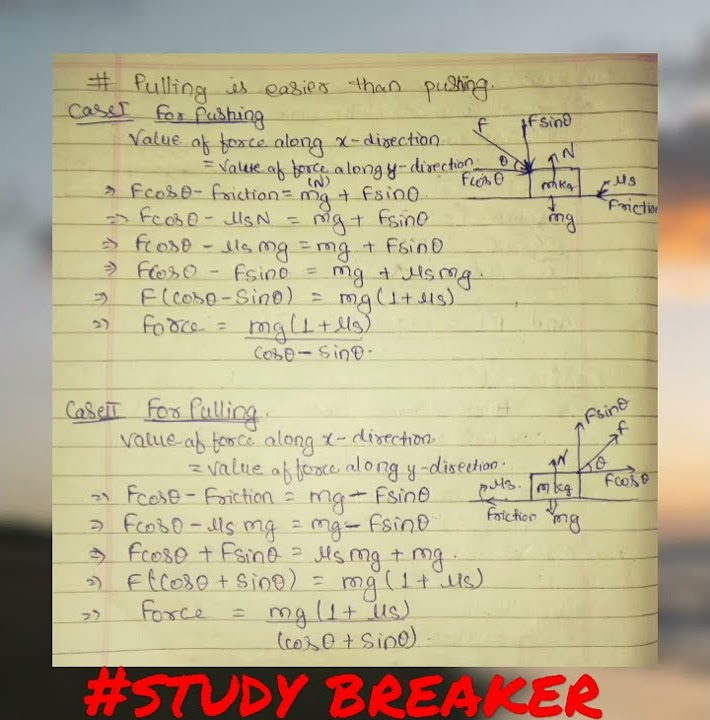 # Pulling is easier than pushing.
Case I For Pushing
Value of force along x-direction
= Value of force along y-direction.
(N)
⇒ Fcosθ - friction = mg + Fsinθ
⇒ Fcosθ - μsN = mg + Fsinθ
⇒ Fcosθ - μsmg = mg + Fsinθ
⇒ Fcosθ - Fsinθ = mg + μsmg.
⇒ F(cosθ-sinθ) = mg(1+μs)
⇒ Force = mg(1+μs)
cosθ - sinθ.
F
Fsinθ
θ
N
Fcosθ
m kg
μs
Friction
mg
Case II For Pulling.
Value of force along x-direction.
= Value of force along y-direction.
⇒ Fcosθ - Friction = mg - Fsinθ
⇒ Fcosθ - μs mg = mg - Fsinθ
⇒ Fcosθ + Fsinθ = μsmg + mg.
⇒ F(cosθ + sinθ) = mg(1+μs)
⇒ Force = mg(1+μs)
(cosθ + sinθ)
Fsinθ
F
N
θ
μs.
m kg
Fcosθ
Friction
mg
#STUDY BREAKER